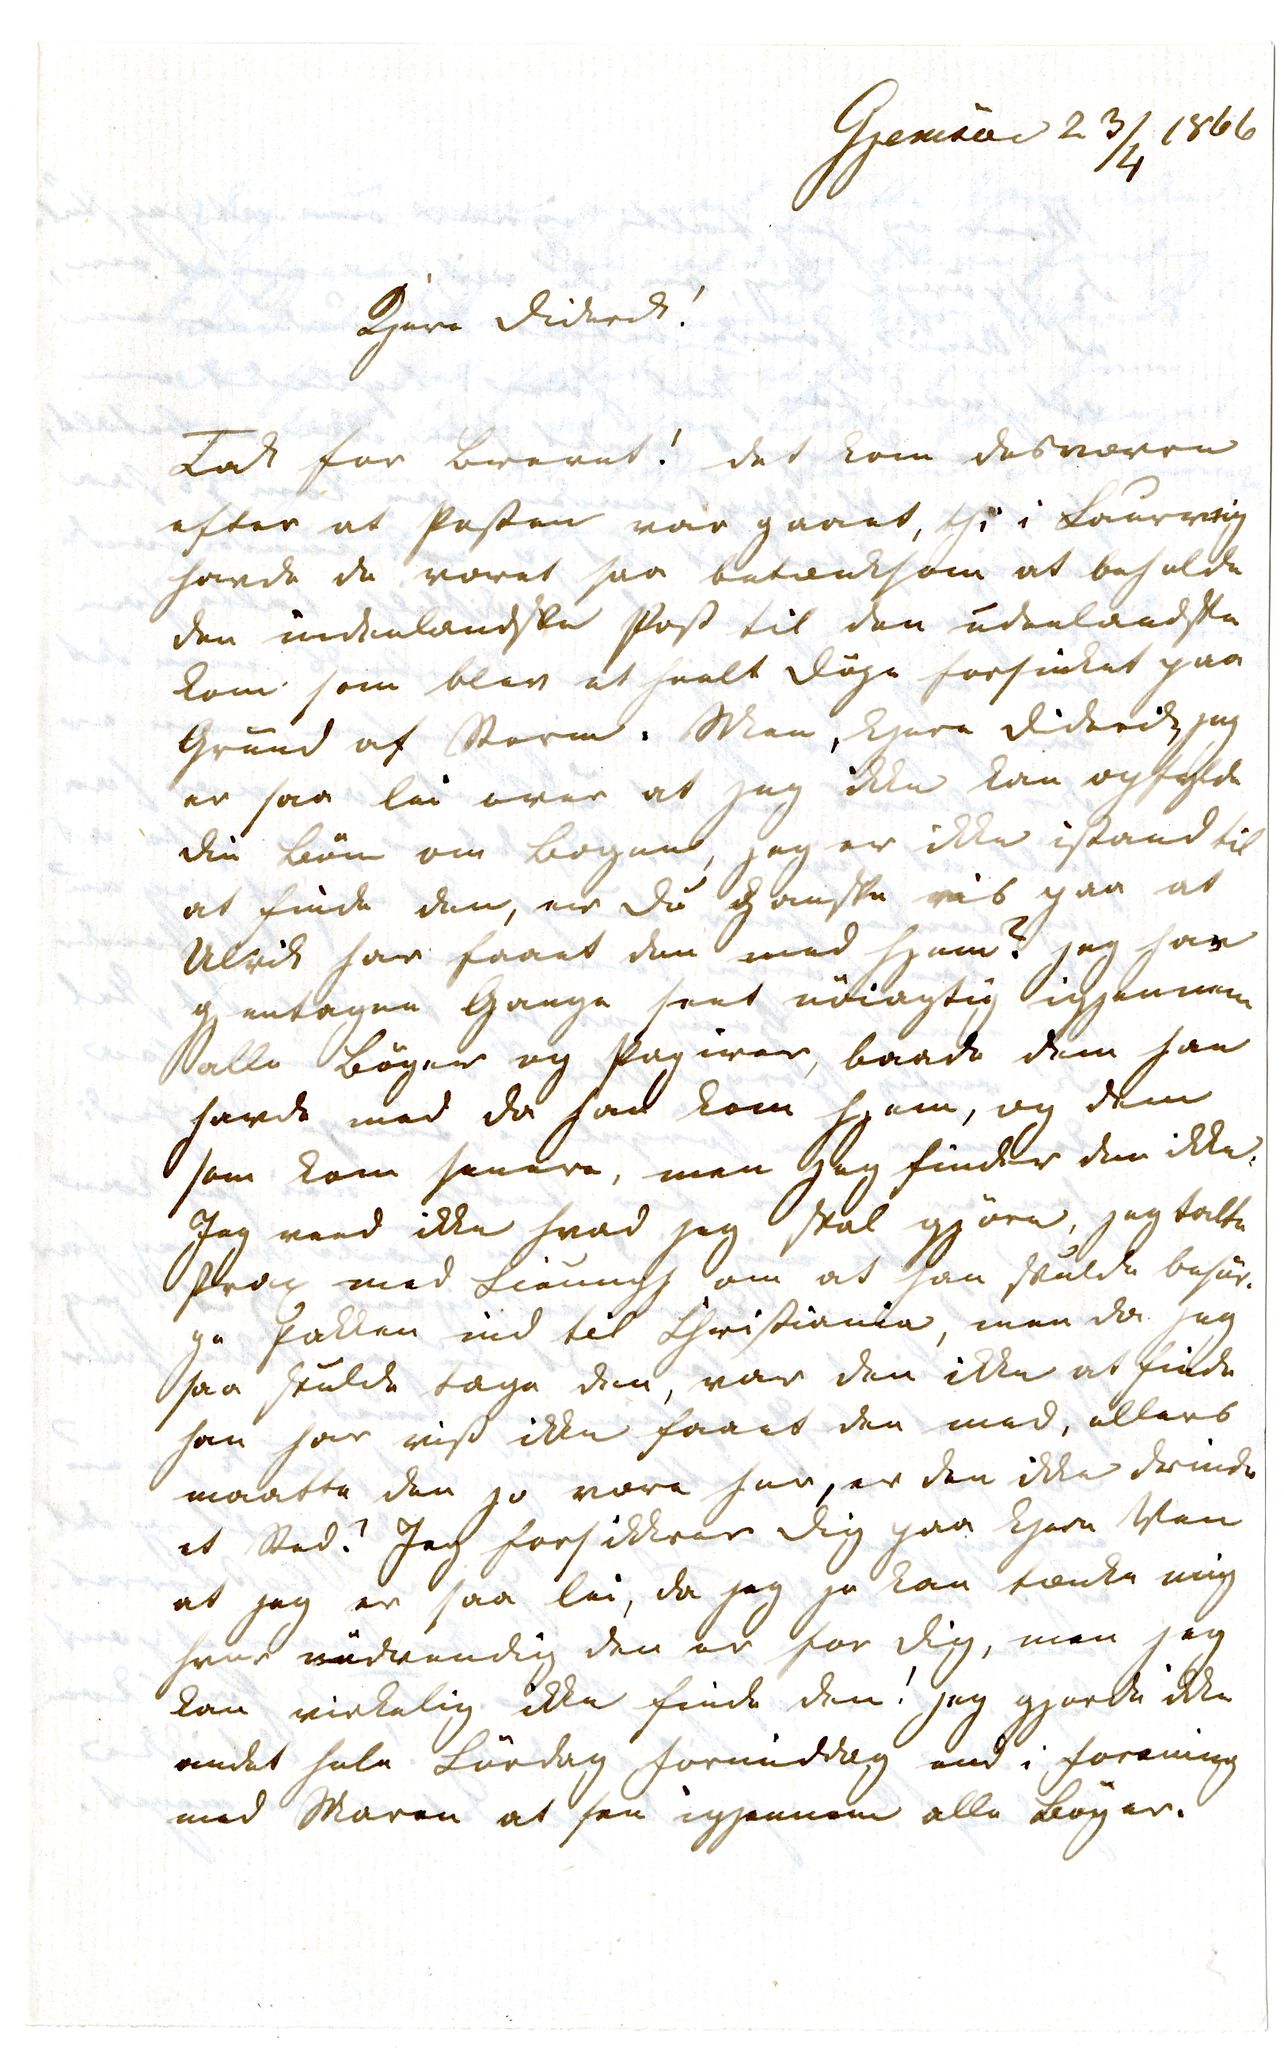 Gjemsöe 23/4 1866
Kjere Diderik!
Tak for Brevet! det kom desværre
efter at Posten var gaaet, thi i Laurvig
havde de været saa betænksom at beholde
den indenlandske Post til den udenlandske
kom som blev et heelt Döge forsinket paa
Grund af Storm. Men, kjere Diderik, jeg
er saa lei over at jeg ikke kan opfylde
din Bön om Bogen, jeg er ikke istand til
at finde den, er Du ganske vis paa at
Ulrik har faaet den med hjem? jeg har
gjentagne Gange seet nöiagtig igjennem
alle Böger og Papirer, baade dem han
havde med da han kom hjem, og dem
som kom senere, men jeg finder den ikke.
Jeg veed ikke hvad jeg skal gjöre, jeg talte
strax med om at han skulde besör-
ge Pakken ind til Christiania, men da jeg
saa skulde tage den, var den ikke at finde
han har vist ikke faaet den med, ellers
maatte den jo være her, er den ikke derinde
et Sted? Jeg forsikkrer Dig paa kjere Ven
at jeg er saa lei, da jeg jo kan tænke mig
hvor nödvendig den er for Dig, men jeg
kan virkelig ikke finde den! jeg gjorde ikke
andet hele Lördag Formiddag end i forening
med Maren at see igjennem alle Böger.